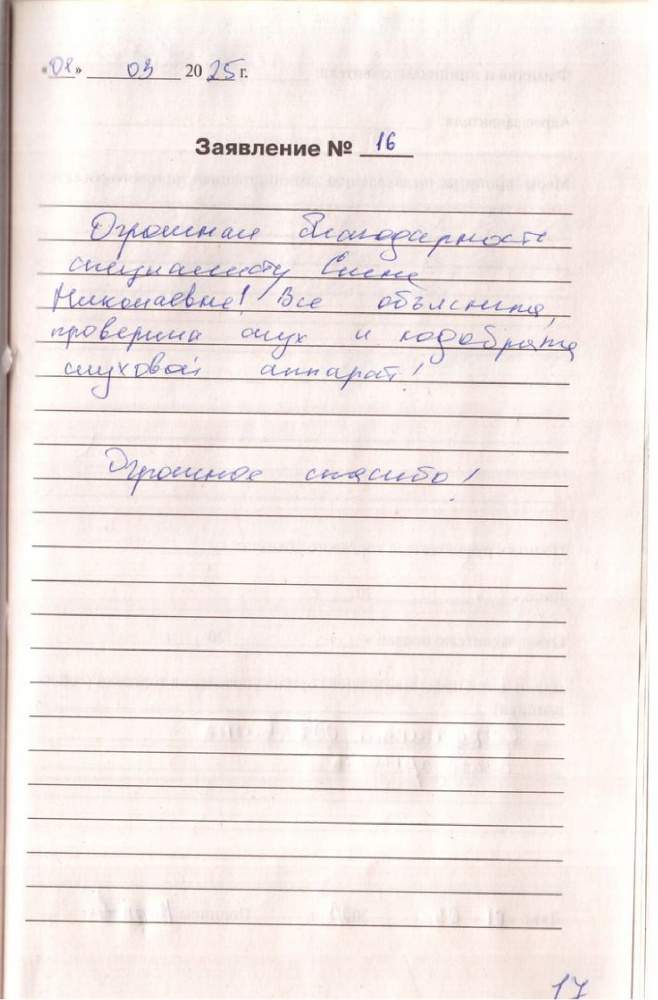 «01» 03 2025 г.
Заявление № 16
Огромная благодарность
специалисту Елене
Николаевне! Все объяснила,
проверила слух и подобрала
слуховой аппарат!
Огромное спасибо!
17